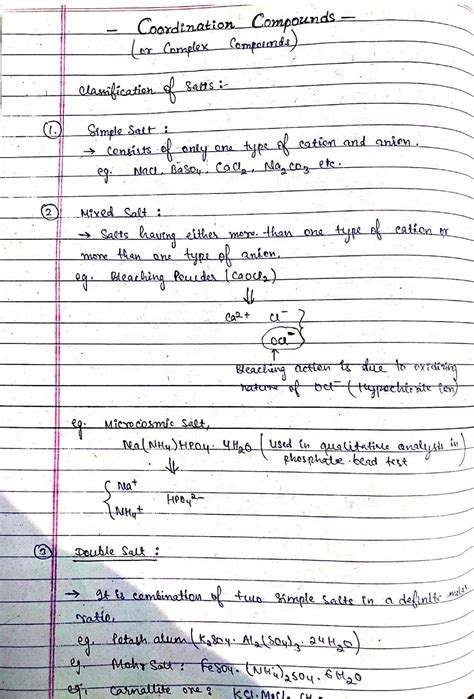 - Coordination Compounds -
(or Complex Compounds)
Classification of Salts :-
(1.) Simple Salt :
→ Consists of only one type of cation and anion.
eg. NaCl, BaSO4, CaCl2, Na2CO3 etc.
(2) Mixed Salt :
→ Salts having either more than one type of cation or
more than one type of anion.
eg. Bleaching Powder (CaOCl2)
⇓
Ca2+ Cl-
OCl-
↑
Bleaching action is due to oxidizing
nature of OCl- (Hypochlorite ion)
eg. Microcosmic Salt,
Na(NH4)HPO4. 4H2O (used in qualitative analysis in
phosphate bead test
⇓
Na+
HPO4 2-
NH4+
(3) Double Salt :
→ It is combination of two simple salts in a definite molar
ratio.
eg. Potash alum (K2SO4. Al2(SO4)3. 24H2O)
eg. Mohr Salt : FeSO4. (NH4)2SO4. 6H2O
eg. Carnallite ore : KCl.